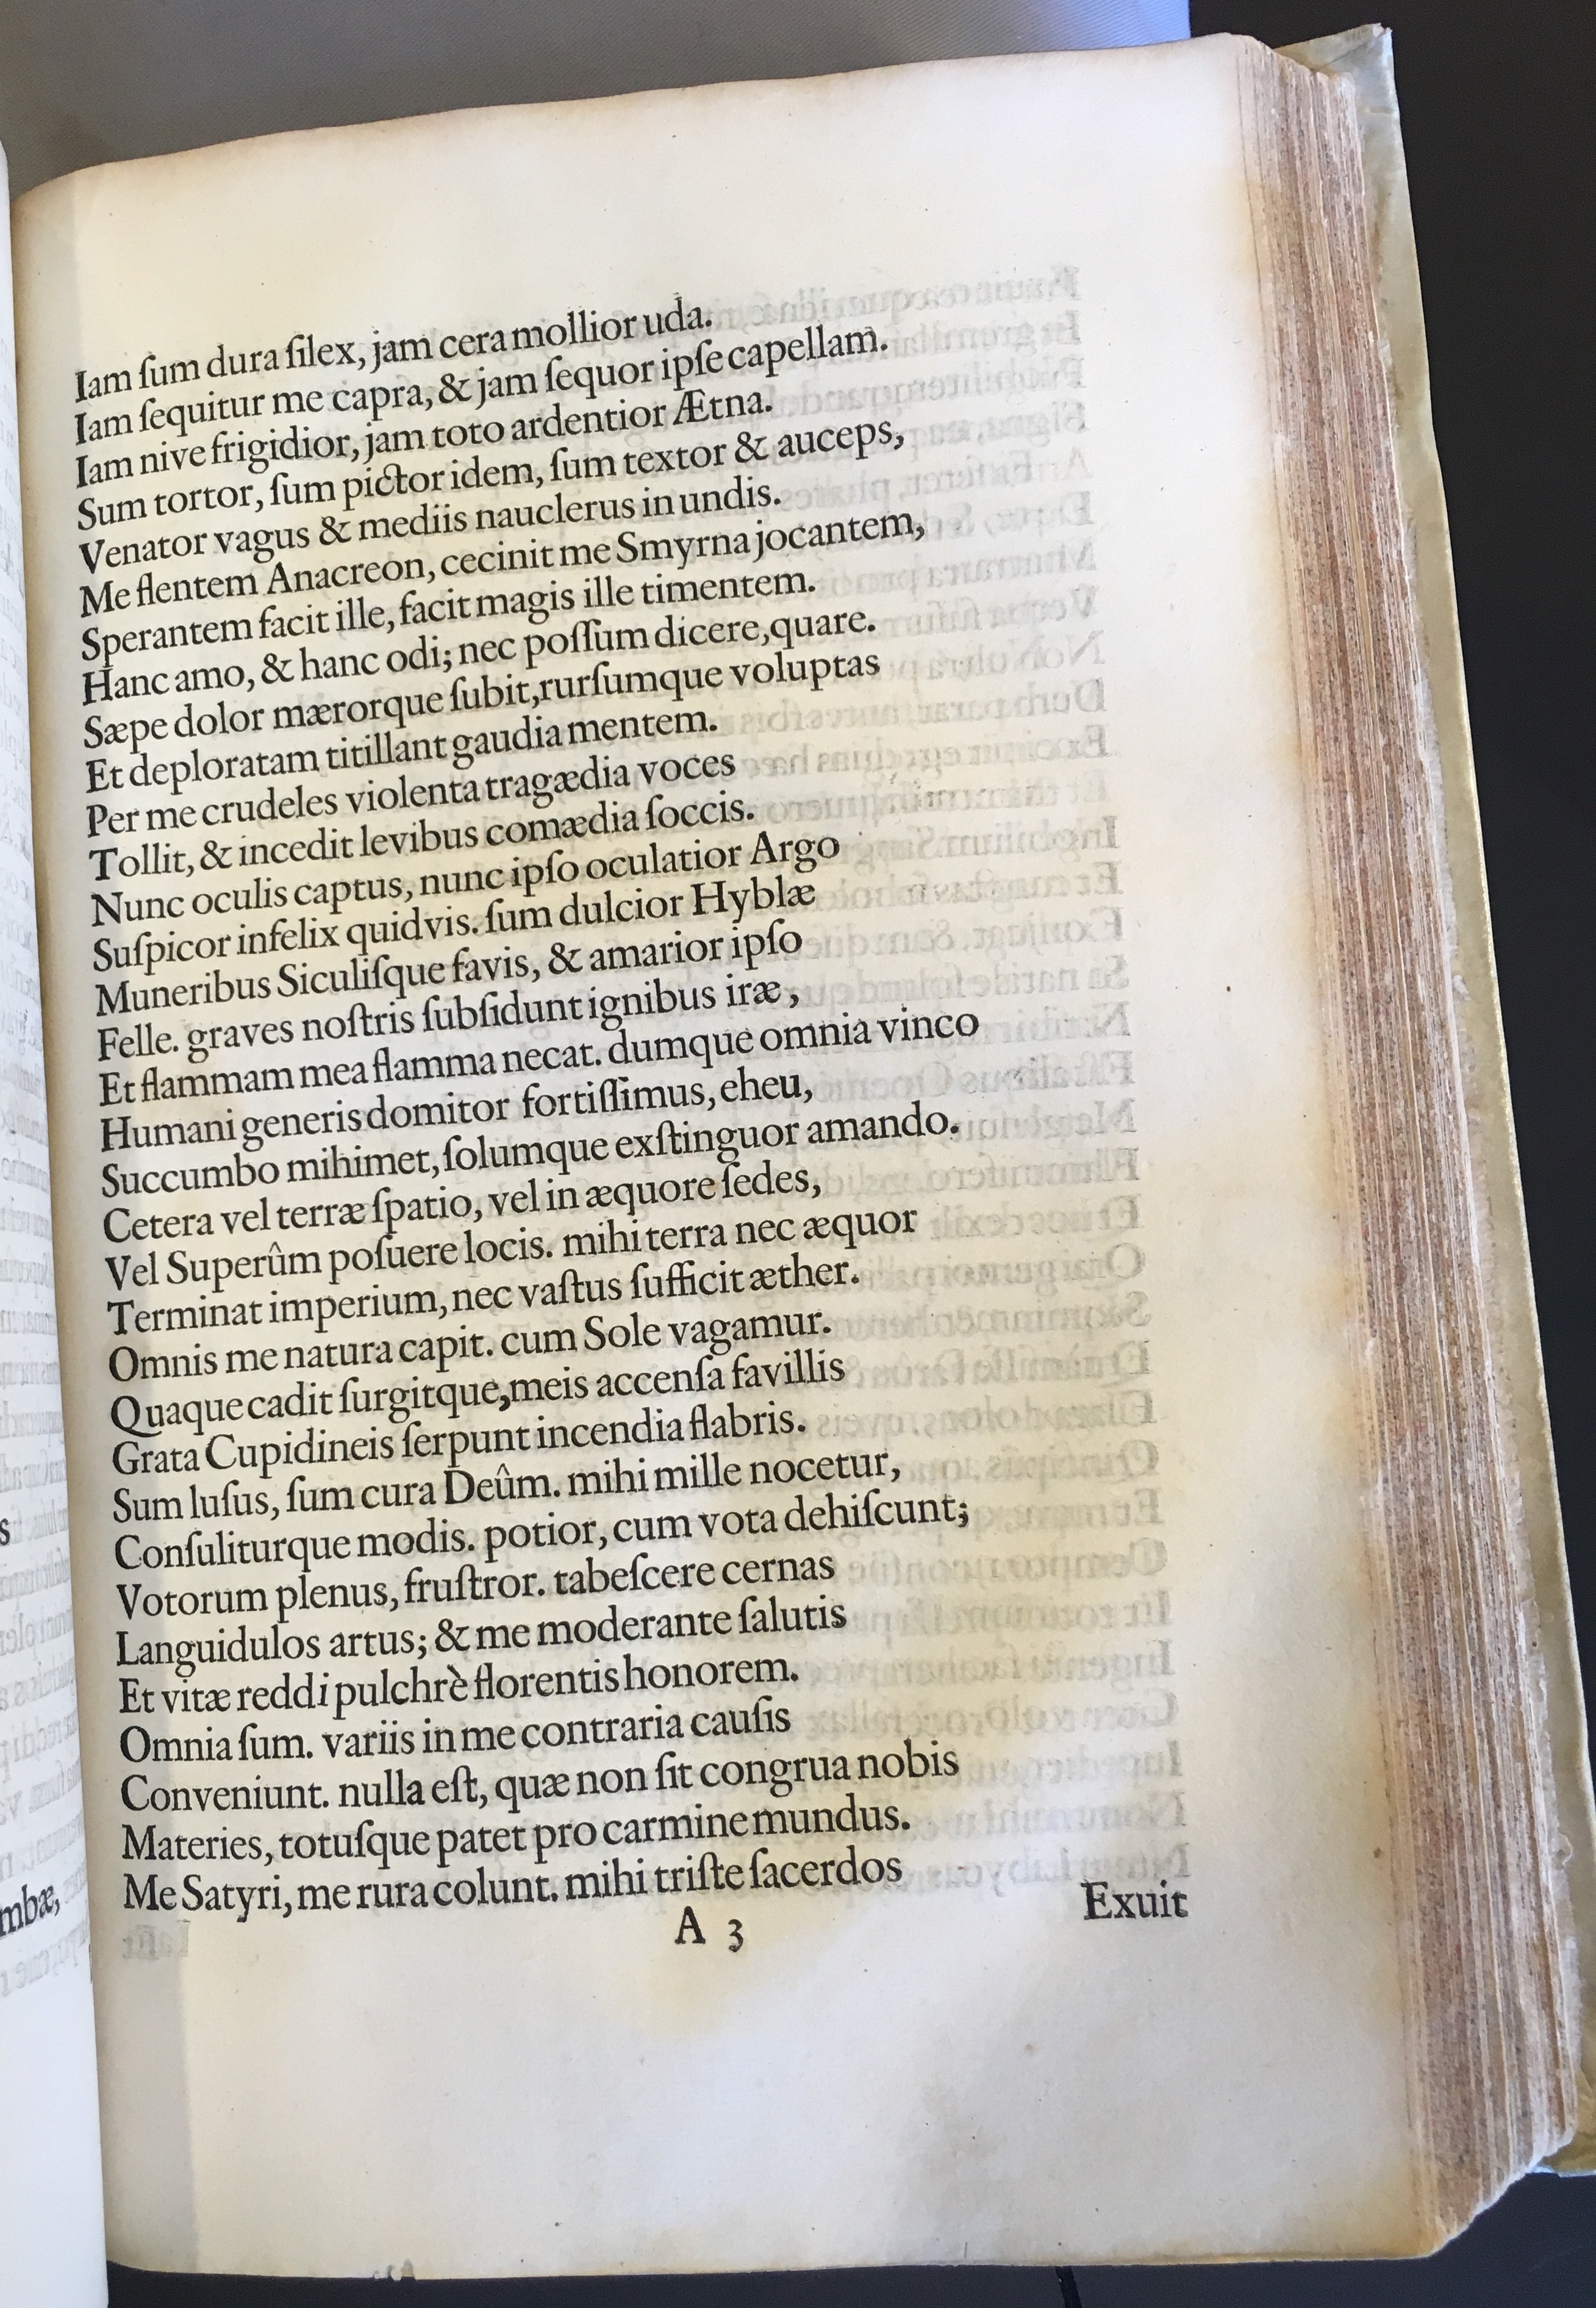 Iam ſum dura ſilex, jam cera mollior uda.
Iam ſequitur me capra, & jam ſequor ipſe capellam.
Iam nive frigidior, jam toto ardentior Ætna.
Sum tortor, ſum pictor idem, ſum textor & auceps,
Venator vagus & mediis nauclerus in undis.
Me flentem Anacreon, cecinit me Smyrna jocantem,
Sperantem facit ille, facit magis ille timentem.
Hanc amo, & hanc odi; nec poſſum dicere, quare.
Sæpe dolor mærorque ſubit, rurſumque voluptas
Et deploratam titillant gaudia mentem.
Per me crudeles violenta tragædia voces
Tollit, & incedit levibus comædia ſoccis.
Nunc oculis captus, nunc ipſo oculatior Argo
Suſpicor infelix quidvis. ſum dulcior Hyblæ
Muneribus Siculiſque favis, & amarior ipſo
Felle. graves noſtris ſubſidunt ignibus iræ,
Et flammam mea flamma necat. dumque omnia vinco
Humani generis domitor fortiſſimus, eheu,
Succumbo mihimet, ſolumque exſtinguor amando.
Cetera vel terræ ſpatio, vel in æquore ſedes,
Vel Superûm poſuere locis. mihi terra nec æquor
Terminat imperium, nec vaſtus ſufficit æther.
Omnis me natura capit. cum Sole vagamur.
Quaque cadit ſurgitque, meis accenſa favillis
Grata Cupidineis ſerpunt incendia flabris.
Sum luſus, ſum cura Deûm. mihi mille nocetur,
Conſuliturque modis. potior, cum vota dehiſcunt;
Votorum plenus, fruſtror. tabeſcere cernas
Languidulos artus; & me moderante ſalutis
Et vitæ reddi pulchrè florentis honorem.
Omnia ſum. variis in me contraria cauſis
Conveniunt. nulla eſt, quæ non ſit congrua nobis
Materies, totuſque patet pro carmine mundus.
Me Satyri, me rura colunt. mihi triſte ſacerdos
A 3 Exuit
mbæ,